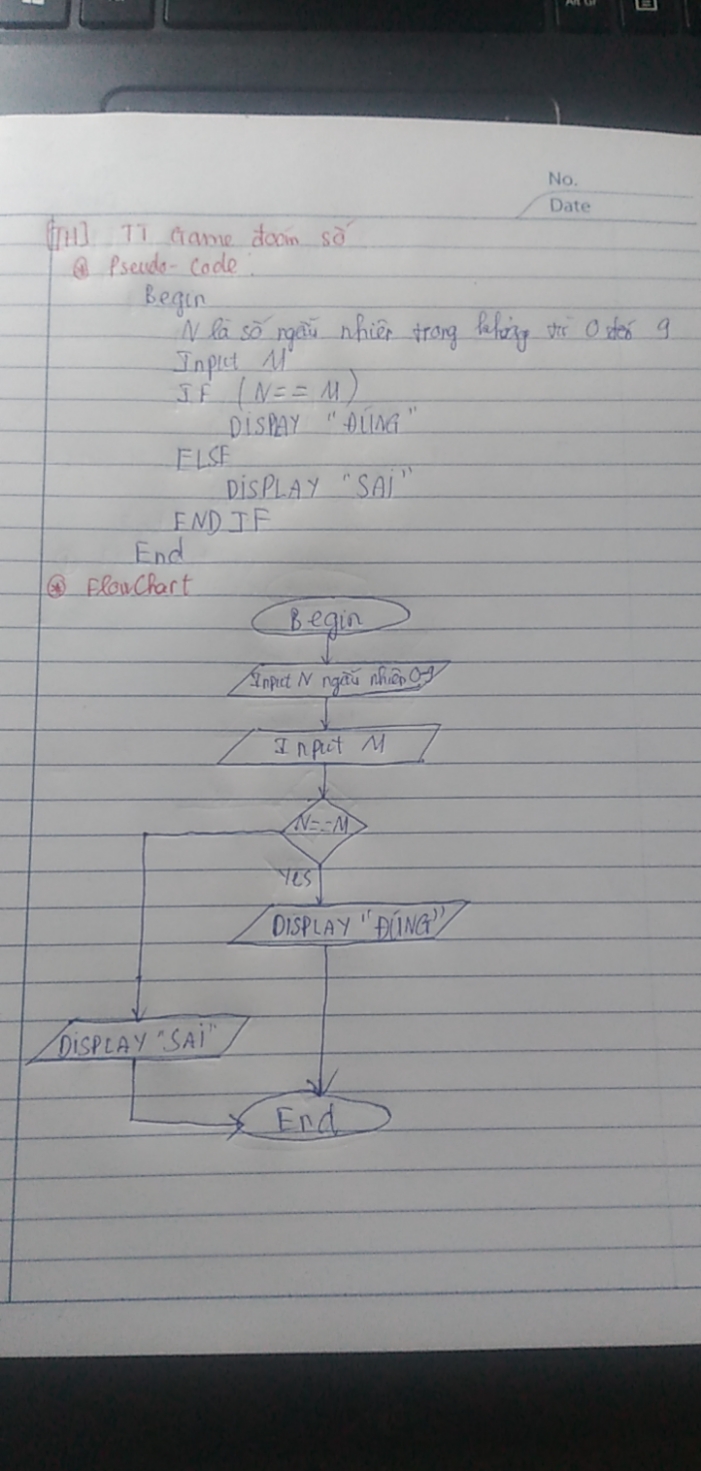 No.
Date
[TH] TT Game đoán số
Pseudo-Code:
Begin
N là số ngẫu nhiên trong khoảng từ 0 đến 9
Input M
IF (N==M)
DISPAY "ĐÚNG"
ELSE
DISPLAY "SAI"
END IF
End
FlowChart
Begin
Input N ngẫu nhiên 0-9
Input M
N==M
Yes
DISPLAY "ĐÚNG"
DISPLAY "SAI"
End